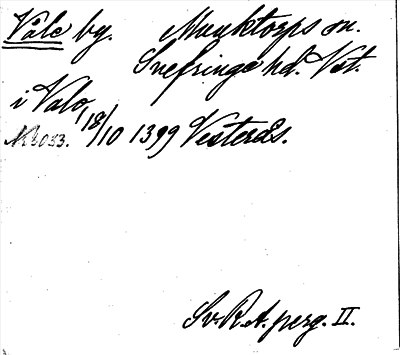 Våle by. Munktorps sn.
Snefringe hd. Vst.
i Valo,
N 3033. 18/10 1399 Vesterås.
Sv. R. A. perg. II.